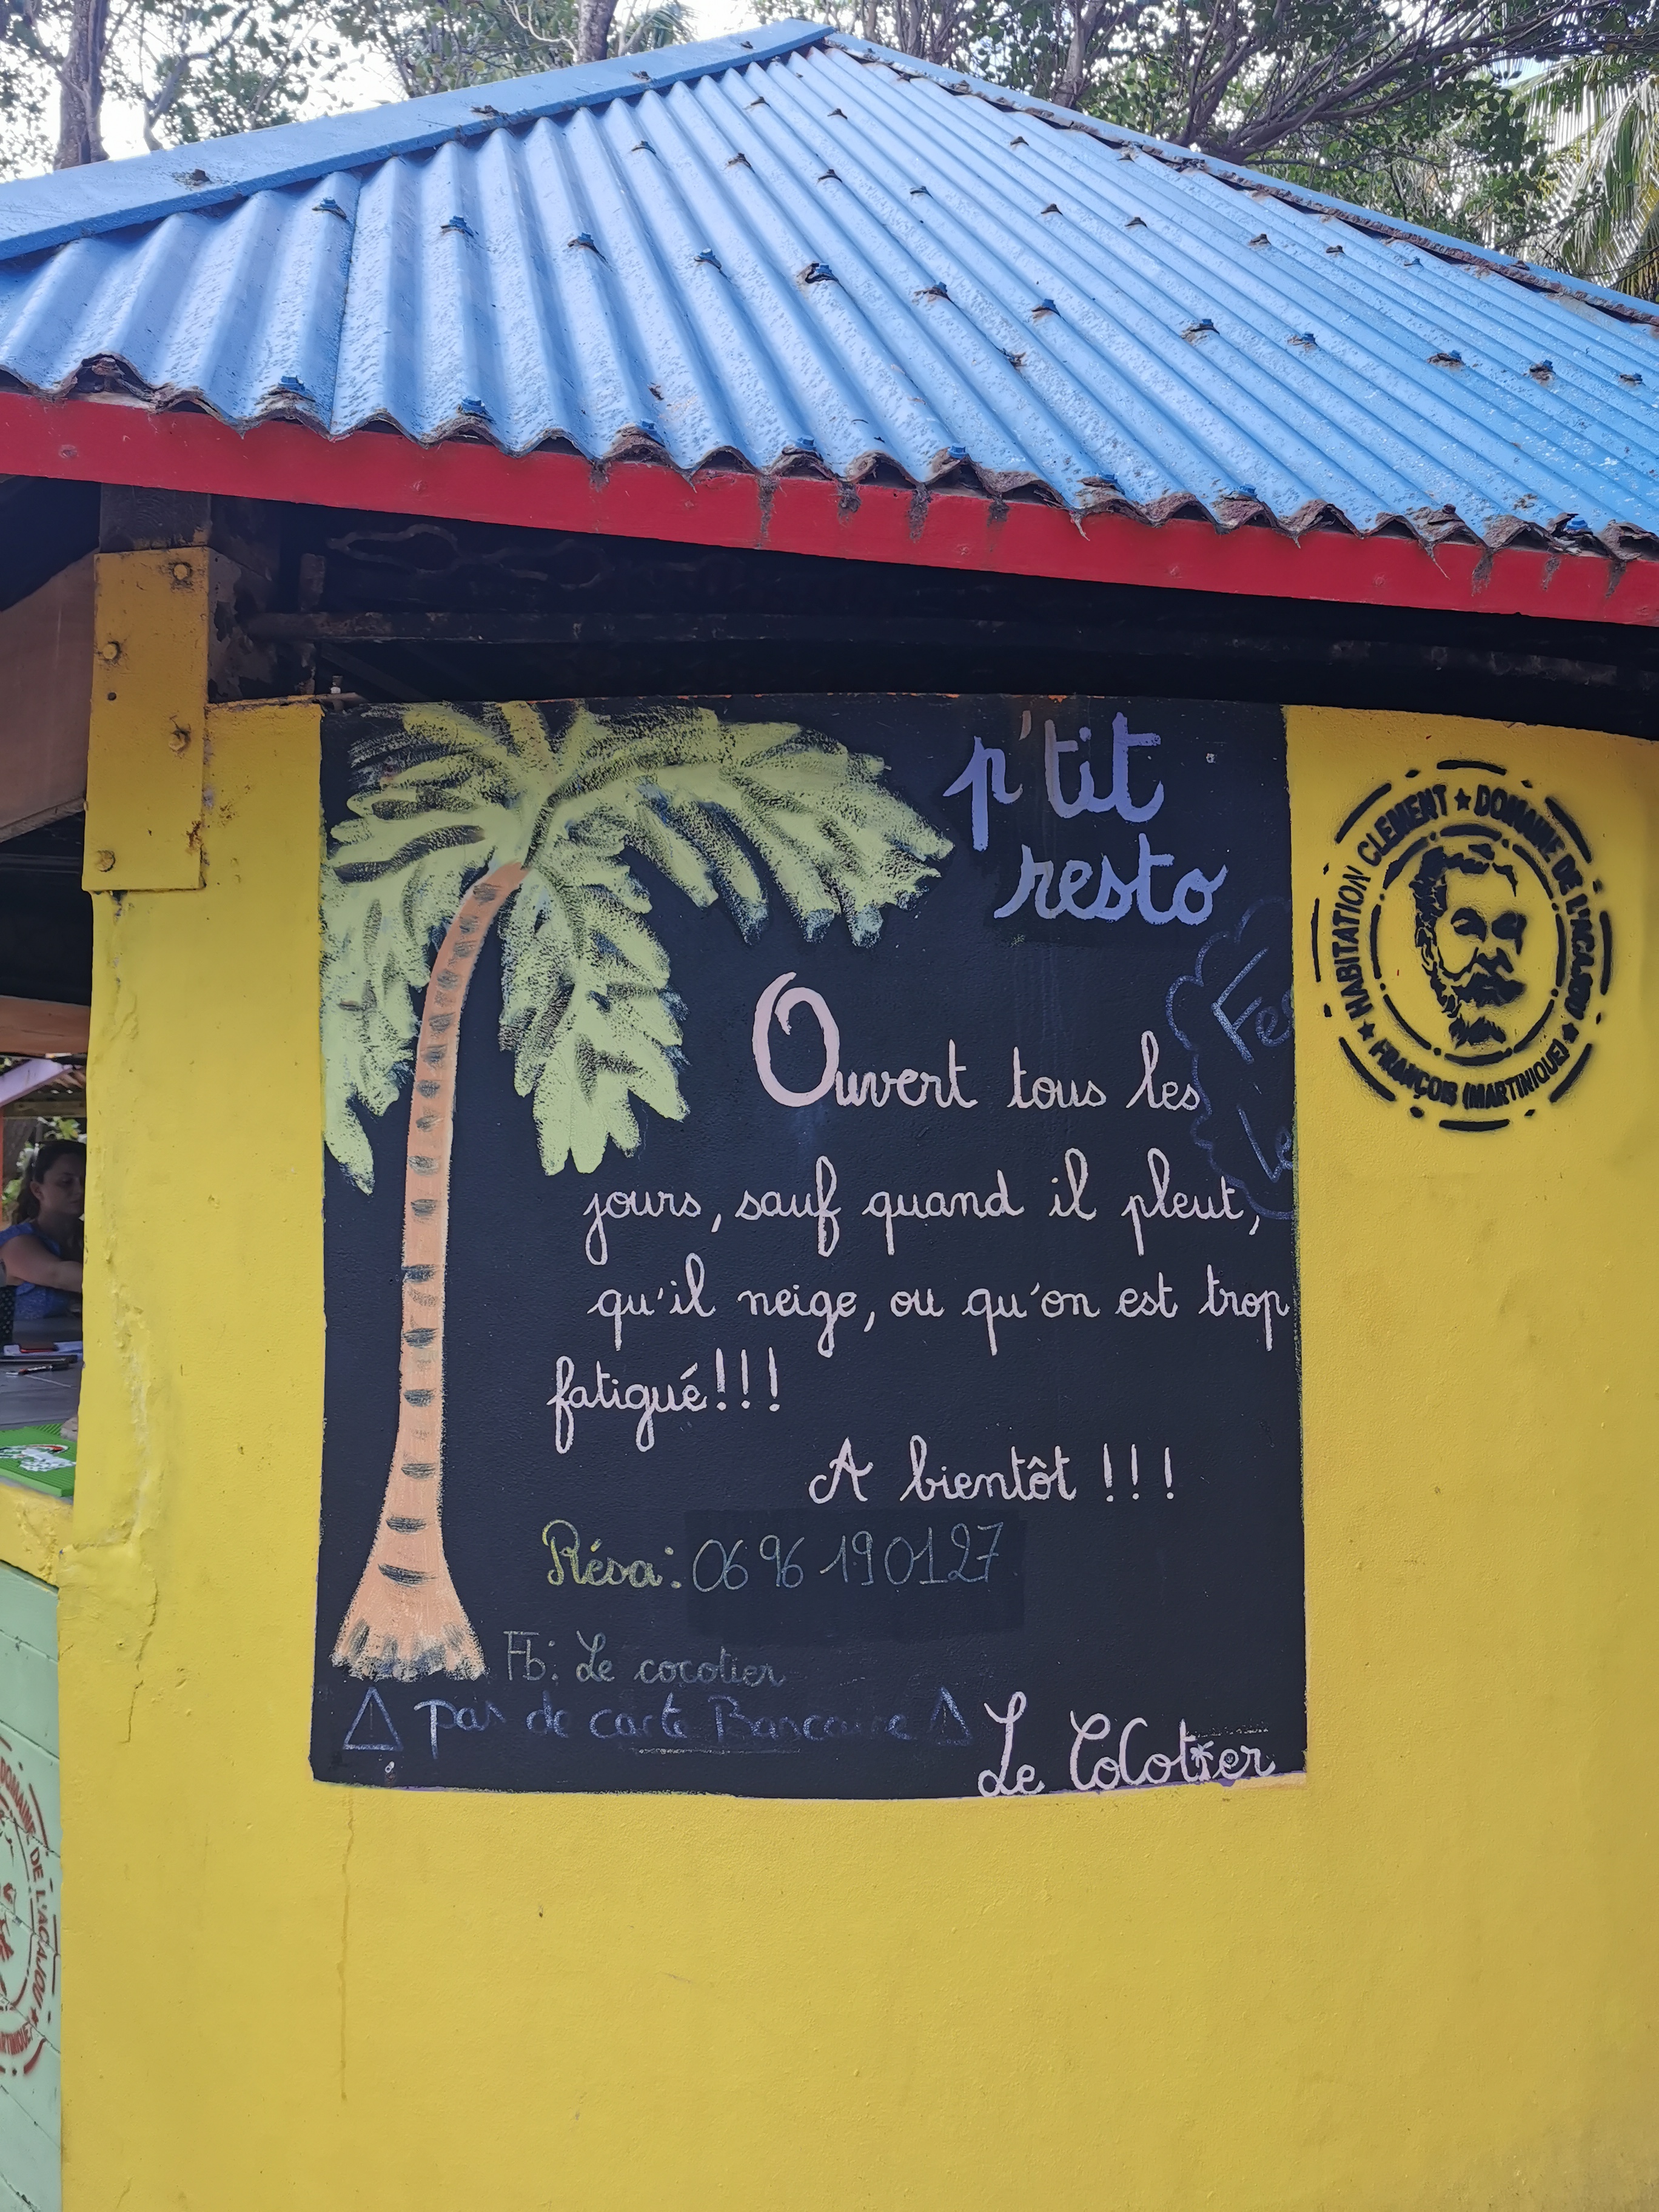 p'tit
resto
Ouvert tous les
jours, sauf quand il pleut,
qu'il neige, ou qu'on est trop
fatigué!!!
A bientôt !!!
Résa: 06 96 19 01 27
Fb: Le cocotier
pas de carte Bancaire
Le CoCotier
HABITATION CLEMENT ★ DOMAINE DE L'ACAJOU ★
★ FRANÇOIS (MARTINIQUE)
DOMAINE DE L'ACAJOU ★